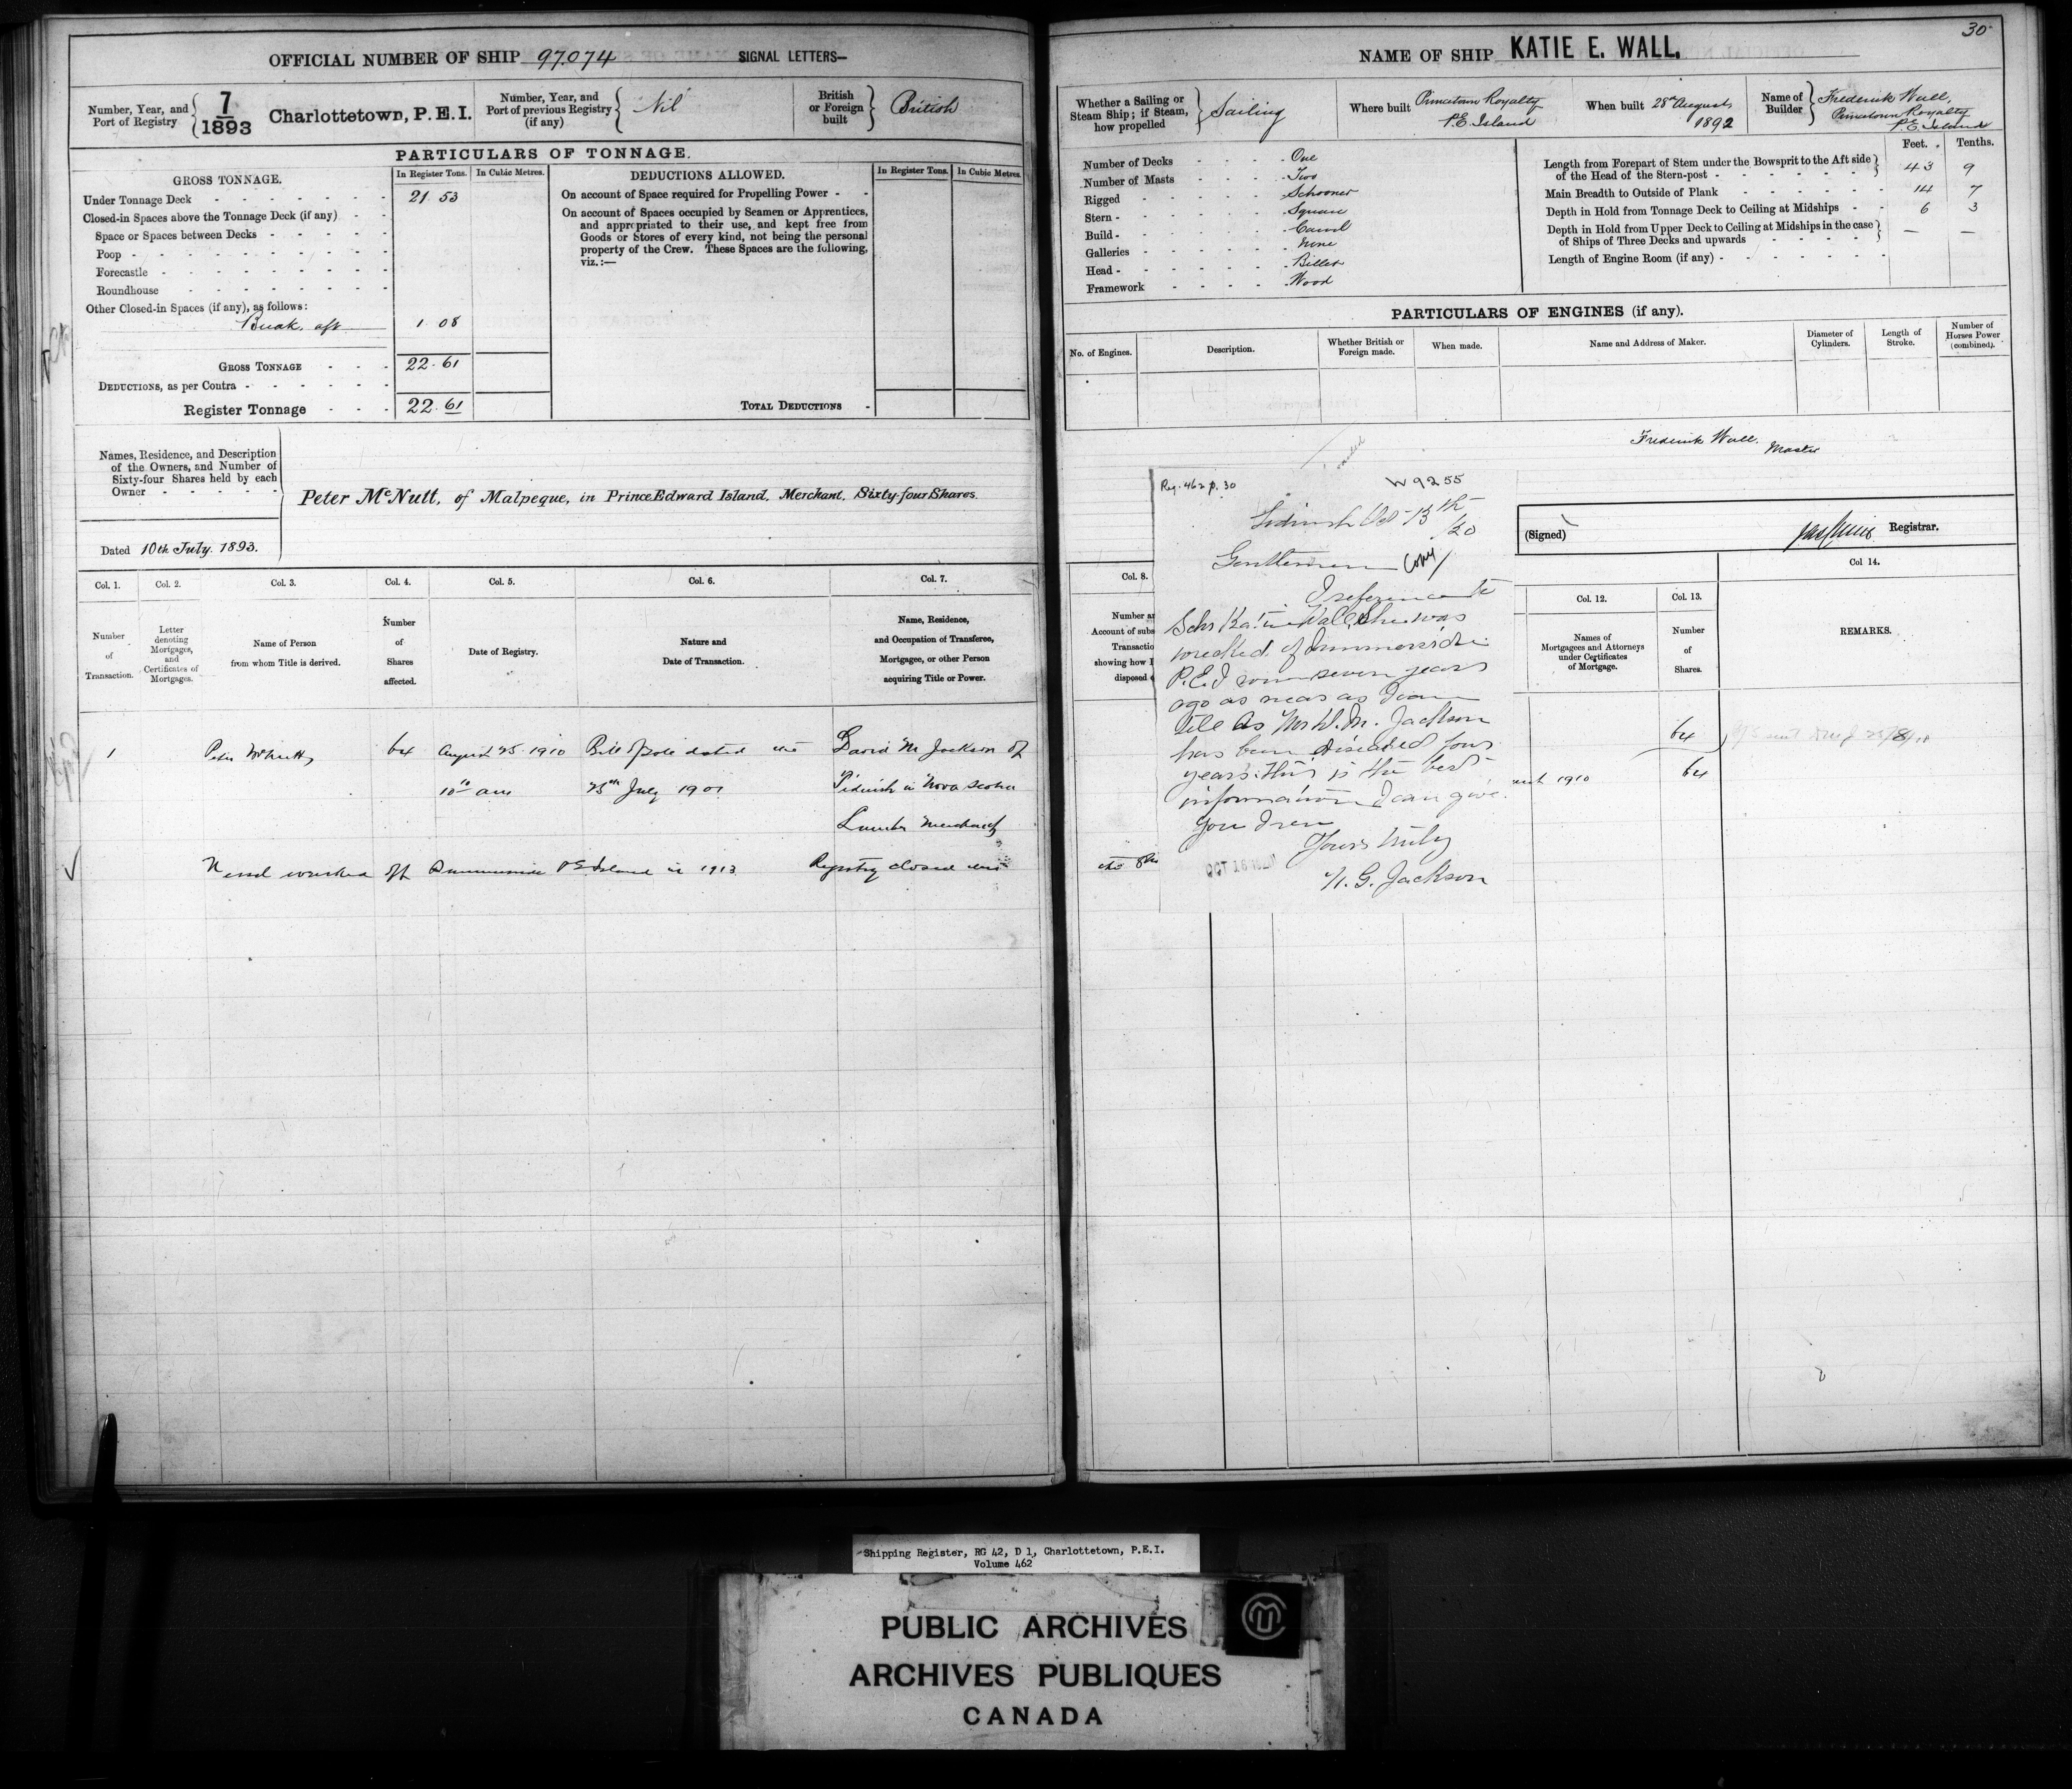 OFFICIAL NUMBER OF SHIP 97.074 SIGNAL LETTERS—
Number, Year, and Port of Registry { 7/1893 Charlottetown, P.E.I.
Number, Year, and Port of previous Registry (if any) { Nil
British or Foreign built } British
PARTICULARS OF TONNAGE.
GROSS TONNAGE. In Register Tons. In Cubic Metres.
Under Tonnage Deck 21 53
Closed-in Spaces above the Tonnage Deck (if any)
Space or Spaces between Decks
Poop
Forecastle
Roundhouse
Other Closed-in Spaces (if any), as follows:
Break, aft 1.08
GROSS TONNAGE 22.61
DEDUCTIONS, as per Contra
Register Tonnage 22.61
DEDUCTIONS ALLOWED. In Register Tons. In Cubic Metres.
On account of Space required for Propelling Power
On account of Spaces occupied by Seamen or Apprentices,
and appropriated to their use, and kept free from
Goods or Stores of every kind, not being the personal
property of the Crew. These Spaces are the following,
viz.:—
TOTAL DEDUCTIONS
Names, Residence, and Description
of the Owners, and Number of
Sixty-four Shares held by each
Owner
Peter McNutt, of Malpeque, in Prince Edward Island, Merchant, Sixty-four Shares.
Dated 10th July. 1893.
Col. 1. Col. 2. Col. 3. Col. 4. Col. 5. Col. 6. Col. 7.
Number of Transaction.
Letter denoting Mortgages, and Certificates of Mortgages.
Name of Person from whom Title is derived.
Number of Shares affected.
Date of Registry.
Nature and Date of Transaction.
Name, Residence, and Occupation of Transferee, Mortgagee, or other Person acquiring Title or Power.
1 Peter McNutt 64 August 25 1910 Bill of Sale dated the David M Jackson of
10 am 25th July 1901 Tidnish in Nova Scotia
Lumber Merchant
Vessel wrecked off Summerside P E Island in 1913 Registry closed this
30
NAME OF SHIP KATIE E. WALL.
Whether a Sailing or Steam Ship; if Steam, how propelled } Sailing
Where built Princetown Royalty P.E. Island
When built 28th August 1892
Name of Builder } Frederick Wall, Princetown Royalty P.E. Island
Number of Decks One
Number of Masts Two
Rigged Schooner
Stern Square
Build Carvel
Galleries None
Head Billet
Framework Wood
Feet. Tenths.
Length from Forepart of Stem under the Bowsprit to the Aft side of the Head of the Stern-post 43 9
Main Breadth to Outside of Plank 14 7
Depth in Hold from Tonnage Deck to Ceiling at Midships 6 3
Depth in Hold from Upper Deck to Ceiling at Midships in the case of Ships of Three Decks and upwards — —
Length of Engine Room (if any)
PARTICULARS OF ENGINES (if any).
No. of Engines. Description. Whether British or Foreign made. When made. Name and Address of Maker. Diameter of Cylinders. Length of Stroke. Number of Horses Power (combined).
Frederick Wall. Master
(Signed) Registrar.
Reg. 462 p. 30 W9255
Tidnish Oct 13th
/20
Gentlemen Copy
I reference to
Schr Katie Wall, She was
wrecked of Summerside
P.E.I some seven years
ago as near as I can
tell As Mr D.M. Jackson
has been diseased four
years. this is the best
information I can give
you
Yours truly
H. G. Jackson
Col. 8. Col. 12. Col. 13. Col 14.
Names of Mortgagees and Attorneys under Certificates of Mortgage.
Number of Shares.
REMARKS.
64
1910 64
Shipping Register, RG 42, D 1, Charlottetown, P.E.I.
Volume 462
PUBLIC ARCHIVES
ARCHIVES PUBLIQUES
CANADA